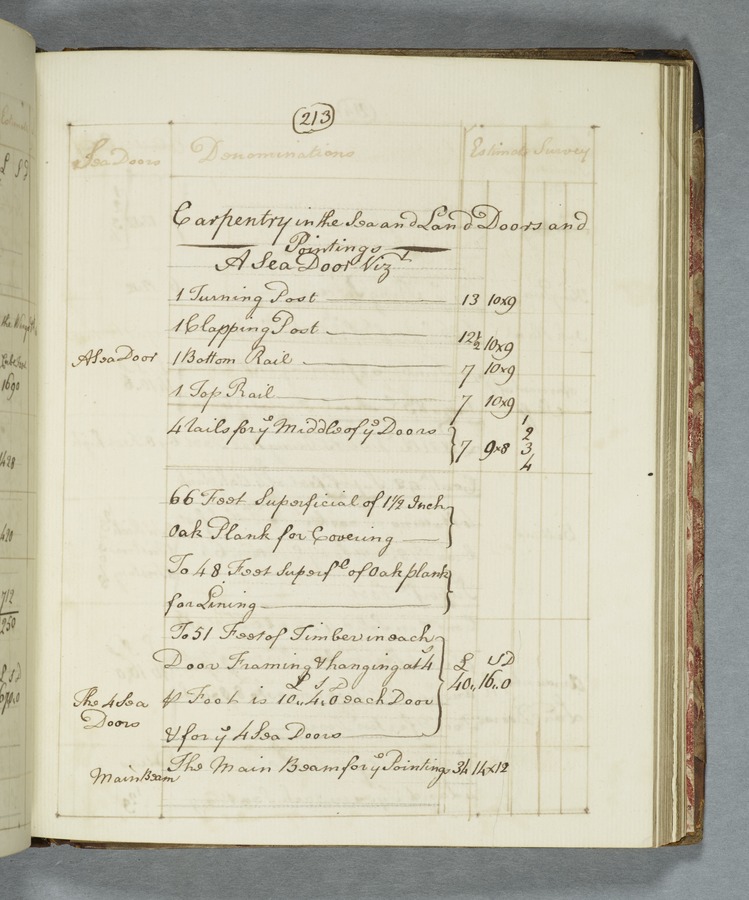 213
Sea Doors Denominations Estimate Survey
Carpentry in the Sea and Land Doors and
Pointings
A Sea Door Viz
1 Turning Post 13 10x9
1 Clapping Post 12½ 10x9
A Sea Door 1 Bottom Rail 7 10x9
1 Top Rail 7 10x9
4 Rails for yᵉ Middle of yᵉ Doors 7 9x8 1 2 3 4
66 Feet Superficial of 1½ Inch
Oak Plank for Covering
To 48 Feet Superfˡᵉ of Oak plank
for Lining
To 51 Feet of Timber in each
Door Framing & hanging at 4ˢ £ S D
⅌ Foot is £10,,4ˢ,,0ᴰ each Door 40,,16,,0
The 4 Sea
Doors
& for yᵉ 4 Sea Doors
Main Beam The Main Beam for yᵉ Pointings 34 14x12
£ S
the
1690
420
712
250
£ S D